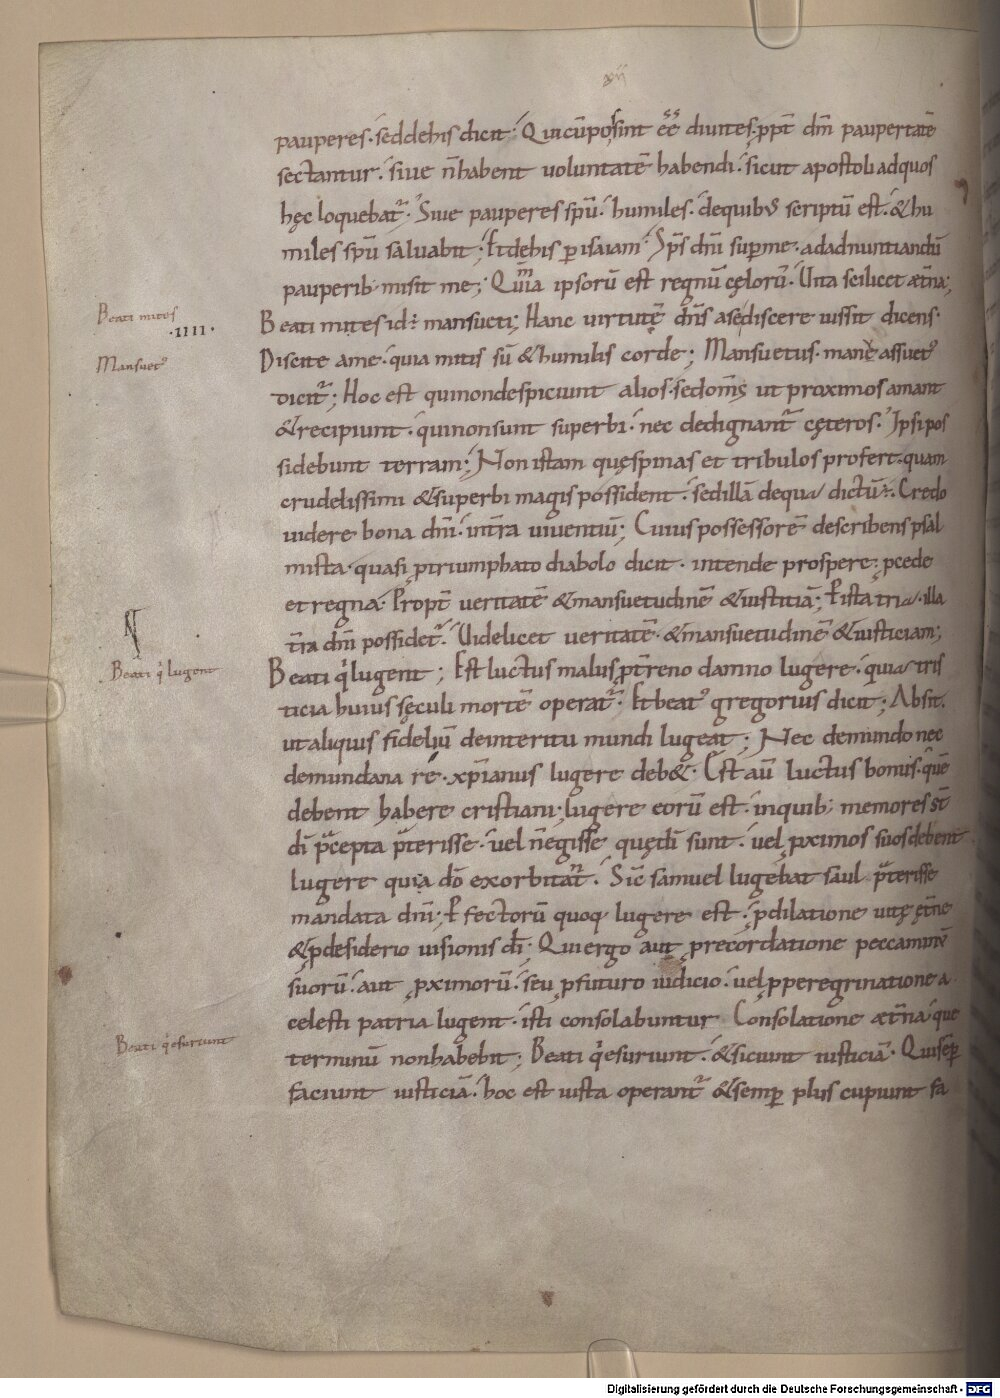 xii
pauperes · sed de his dicit · Qui cū possint eē diuites · ꝓpt̄ dn̄m paupertatē
sectantur · siue n̄ habent voluntatē habendi · sicut apostoli ad quos
hęc loquebat̄ · Siue pauperes sp̄u · humiles · de quib; scriptū est · & hu
miles sp̄u saluabit ; Et de his ꝑ isaiam · Sp̄s dn̄i sup me · ad adnuntiandū
pauperib · misit me ; Qm̄ ipsorū est regnū cęlorū · Uita scilicet æt̄na ;
Beati mites
· IIII ·
Beati mites id ÷ mansueti ; Hanc uirtutē dn̄s a se discere iussit dicens ·
Mansuet᾿
Discite a me · quia mitis sū & humilis corde ; Mansuetus · manu assuet᾿
dicit̄ ; Hoc est qui non despiciunt alios · sed om̄s ut proximos amant
& recipiunt · qui non sunt superbi · nec dedignant̄ cęteros · Ipsi pos
sidebunt terram ; Non istam quę spinas et tribulos profert · quam
crudelissimi & superbi magis possident · sed illā de qua dictū ÷ · Credo
uidere bona dn̄i · in t̄ra uiuentiū ; Cuius possessorē describens psal
mista · quasi ꝓ triumphato diabolo dicit · intende prospere · ꝓcede
et regna · Propt̄ veritatē & mansuetudinē & iustitiā ; Per ista tria · illa
t̄ra dn̄i possidet̄ · Uidelicet veritatē · & mansuetudinē & iusticiam ;
Beati q̇ lugent
Beati q̇ lugent ; Est luctus malus ꝓ t̄reno damno lugere · quia tris
ticia huius sęculi mortē operat̄ · Et beat᾿ gregorius dicit ; Absit ·
ut aliquis fideliū de interitu mundi lugeat ; Nec de mundo nec
de mundana rē · xp̄ianus lugere deb& · Est aū luctus bonus · quē
debent habere cristiani · lugere eorū est · in quib; memores st̄
dī p̄cepta p̄terisse · uel n̄ egisse quę dī sunt · uel ꝓximos suos debent
lugere quia dō exorbitat̄ · Sic samuel lugebat saul p̄terisse
mandata dn̄i ; Perfectorū quoq; lugere est · ꝓ dilatione uitę ęt̄ne
& ꝓ desiderio uisionis dī ; Qui ergo aut ꝓ recordatione peccaminū
suorū · aut ꝓximorū · seu ꝓ futuro iudicio · uel ꝓ peregrinatione a
celesti patria lugent · isti consolabuntur Consolatione æt̄na que
Beati q̇ esuriunt
terminū non habebit ; Beati q̇ esuriunt · & siciunt iusticiā · Qui semꝑ
faciunt iusticiā · hoc est iusta operant̄ & semꝑ plus cupiunt fa
Digitalisierung gefördert durch die Deutsche Forschungsgemeinschaft - DFG